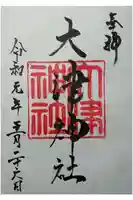 奉拝
大津神社
大津
神社
令和元年五月二十六日